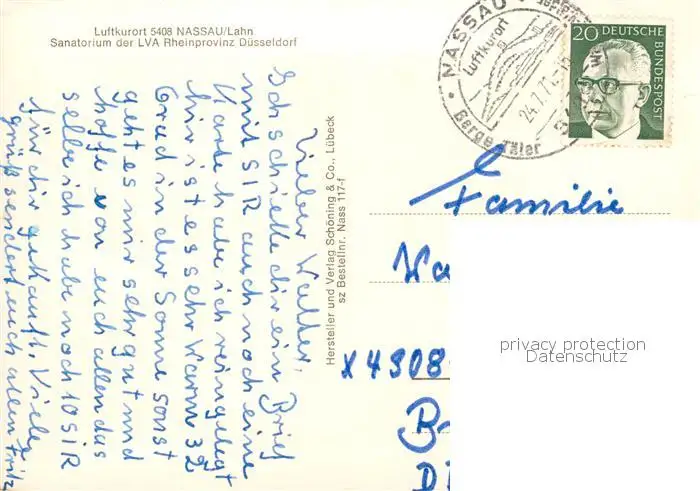 Luftkurort 5408 NASSAU/Lahn
Sanatorium der LVA Rheinprovinz Düsseldorf
NASSAU
Luftkurort
24.7.71
Berge Täler
20 DEUTSCHE
BUNDESPOST
Lieber Walter,
Ich schicke dir ein Brief
mit SIR auch noch eine
Karte habe ich reingelegt
hir ist es sehr Warm 32
Grad in der Sonne sonst
geht es mir sehr gut und
hoffe von euch allen das
selbe ich habe noch 10 SIR
für dir gekauft. Viele
grüß sendert euch allen Fritz
Hersteller und Verlag Schöning & Co., Lübeck
sz Bestellnr. Nass 117-f
Familie
X 4908
privacy protection
Datenschutz